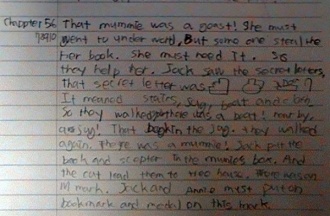 Chapter 56 That mummie was a goast! She must
78910 went to under world, But some one steal the
Her book. She must need It. So
they help her. Jack saw the secret letters,
that secret letter was
It meaned stairs, jug, boat and cloth
So they walked there was a boat! near by.
a jug! That the jug. they walked
again. There was a mummie! Jack put the
book and scepter In the mumies box. And
the cat lead them to tree house. There was an
M mark. Jack and Annie must put on
bookmark and medal on this mark